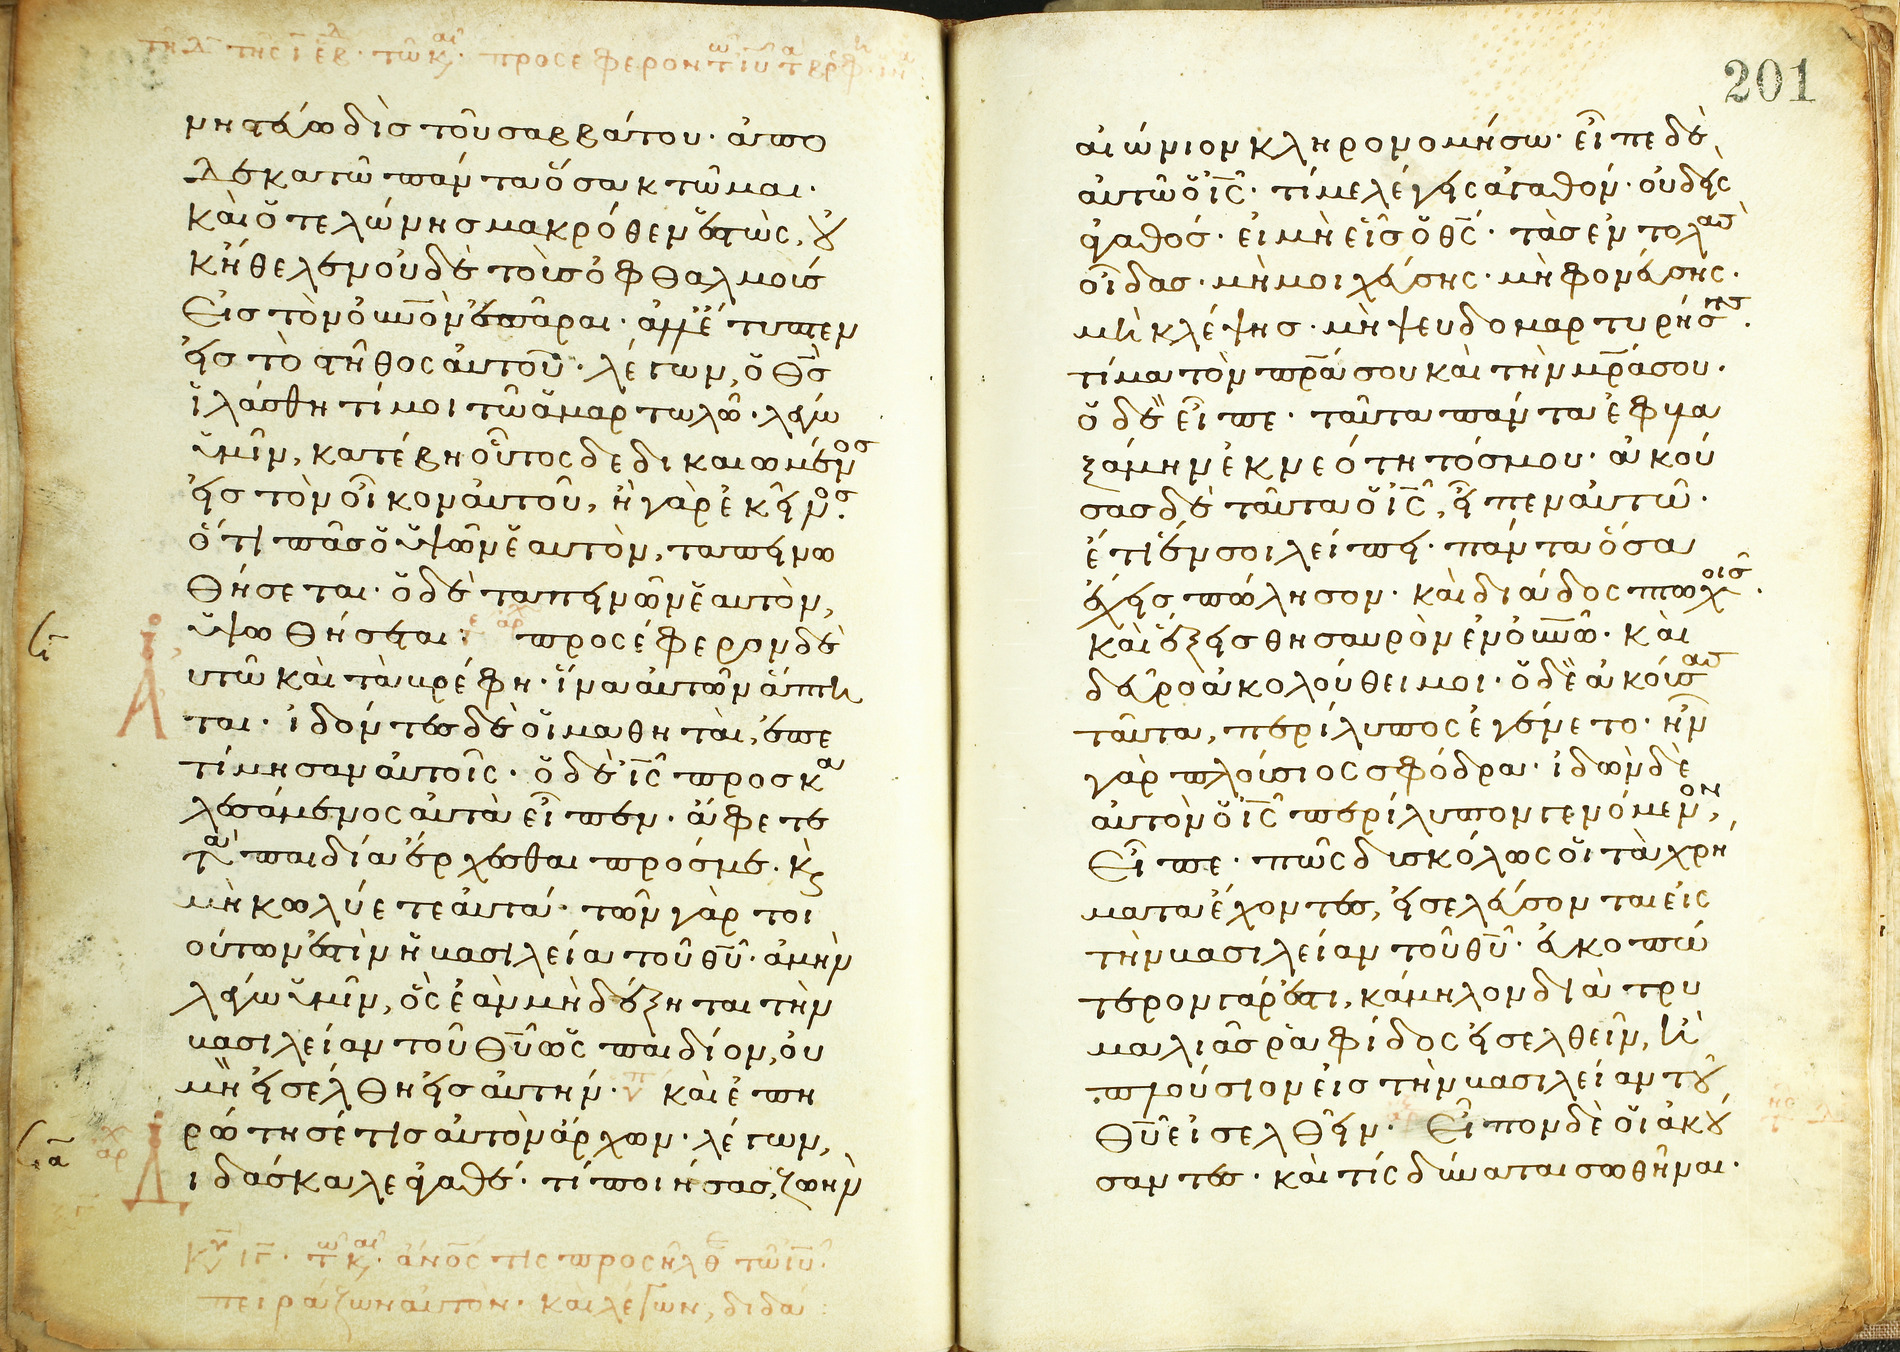 τῆ λ τῆς ι ἑβ. τῶ κ αι. προσεφερον τω ιυ τα βρεφη ινα
νηστεύω δὶς τοῦ σαββάτου· ἀπο
δεκατῶ πάντα ὅσα κτῶμαι·
καὶ ὁ τελώνης μακρόθεν ἑστὼς, οὐ
κ ἤθελεν οὐδὲ τοὺς ὀφθαλμοὺς
εἰς τὸν οὐνον ἐπᾶραι· ἀλλ' ἔτυπτεν
εἰς τὸ στῆθος αὐτοῦ· λέγων, ὁ θς
ἱλάσθητί μοι τῶ ἁμαρτωλῶ· λέγω
ὑμῖν, κατέβη οὗτος δεδικαιωμένος
εἰς τὸν οἶκον αὐτοῦ, ἢ γὰρ ἐκεῖνος·
ὅτι πᾶς ὁ ὑψῶν ἑαυτὸν, ταπεινω
θήσεται· ὁ δὲ ταπεινῶν ἑαυτὸν,
ὑψωθήσεται: προσέφερον δὲ
αυτῶ καὶ τὰ βρέφη· ἵνα αὐτῶν ἅπτη
ται· ἰδόντες δὲ οἱ μαθηταὶ, ἐπε
τίμησαν αὐτοῖς· ὁ δὲ ις προσκα
λεσάμενος αὐτὰ εἶπεν· ἄφετε
τὰ παιδία ἔρχεσθαι πρός με· κ
μὴ κωλύετε αὐτά· τῶν γὰρ τοι
ούτων ἐστὶν ἡ βασιλεία τοῦ θυ· ἀμὴν
λέγω ὑμῖν, ὃς ἐὰν μὴ δέξηται τὴν
βασιλείαν τοῦ θυ ὡς παιδίον, οὐ
μὴ εἰσέλθη εἰς αὐτήν· καὶ ἐπη
ρώτησέ τις αὐτὸν ἄρχων· λέγων,
διδάσκαλε ἀγαθέ· τί ποιήσας, ζωὴν
Κυ ιγ· τω κ αι· ἀνος τις προσηλθε τῶ ιυ·
πειράζων αὐτὸν· καὶ λέγων, διδα
201
αἰώνιον κληρονομήσω· εἶπε δὲ,
αὐτῶ ὁ ις· τί με λέγεις ἀγαθόν· οὐδεὶς
ἀγαθός· εἰ μὴ εἷς ὁ θς· τὰς ἐντολὰς
οἶδας· μὴ μοιχεύσης· μὴ φονεύσης·
μὴ κλέψης· μὴ ψευδομαρτυρήσης·
τίμα τὸν πρα σου καὶ τὴν μρα σου·
ὁ δὲ εἶπε· ταῦτα πάντα ἐφυλα
ξάμην ἐκ νεότητός μου· ἀκού
σας δὲ ταῦτα ὁ ις, εἶπεν αὐτῶ·
ἔτι ἕν σοι λείπει· πάντα ὅσα
ἔχεις πώλησον· καὶ διάδος πτωχοῖς·
καὶ ἕξεις θησαυρὸν ἐν οὐνω· καὶ
δεῦρο ἀκολούθει μοι· ὁ δὲ ἀκούσας
ταῦτα, περίλυπος ἐγένετο· ἦν
γὰρ πλούσιος σφόδρα· ἰδὼν δὲ
αὐτὸν ὁ ις περίλυπον γενόμενον,
εἶπε· πῶς δυσκόλως οἱ τὰ χρή
ματα ἔχοντες, εἰσελεύσονται εἰς
τὴν βασιλείαν τοῦ θυ· εὐκοπώ
τερον γάρ ἐστι, κάμηλον διὰ τρυ
μαλιᾶς ῥαφίδος εἰσελθεῖν, ἢ
πλούσιον εἰς τὴν βασιλείαν τοῦ
θυ εἰσελθεῖν· Εἶπον δὲ οἱ ἀκού
σαντες· καὶ τίς δύναται σωθῆναι·